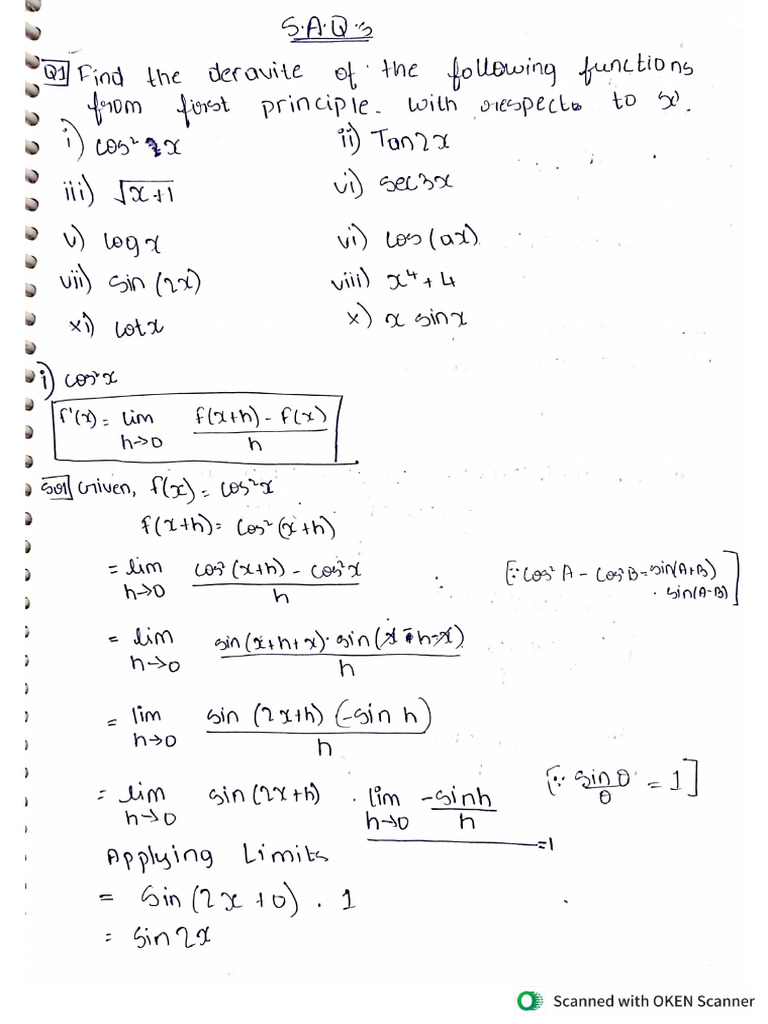 S.A.Q.s
Q1 Find the deravite of the following functions
from first principle. with respect to x.
i) cos² x ii) Tan2x
iii) √x+1 vi) sec3x
v) log x vi) cos(ax)
vii) sin (2x) viii) x⁴ + 4
xi) cot x x) x sinx
i) cos²x
f'(x) = lim h→0 f(x+h) - f(x) / h
Sol Given, f(x) = cos²x
f(x+h) = cos²(x+h)
= lim h→0 cos²(x+h) - cos²x / h [∵ cos²A - cos²B = sin(A+B) · sin(A-B)]
= lim h→0 sin(x+h+x) · sin(x - h - x) / h
= lim h→0 sin (2x+h) (-sin h) / h
= lim h→0 sin(2x+h) · lim h→0 -sinh / h = 1 [∵ sinθ / θ = 1]
Applying Limits
= sin(2x+0) . 1
= sin2x
Scanned with OKEN Scanner